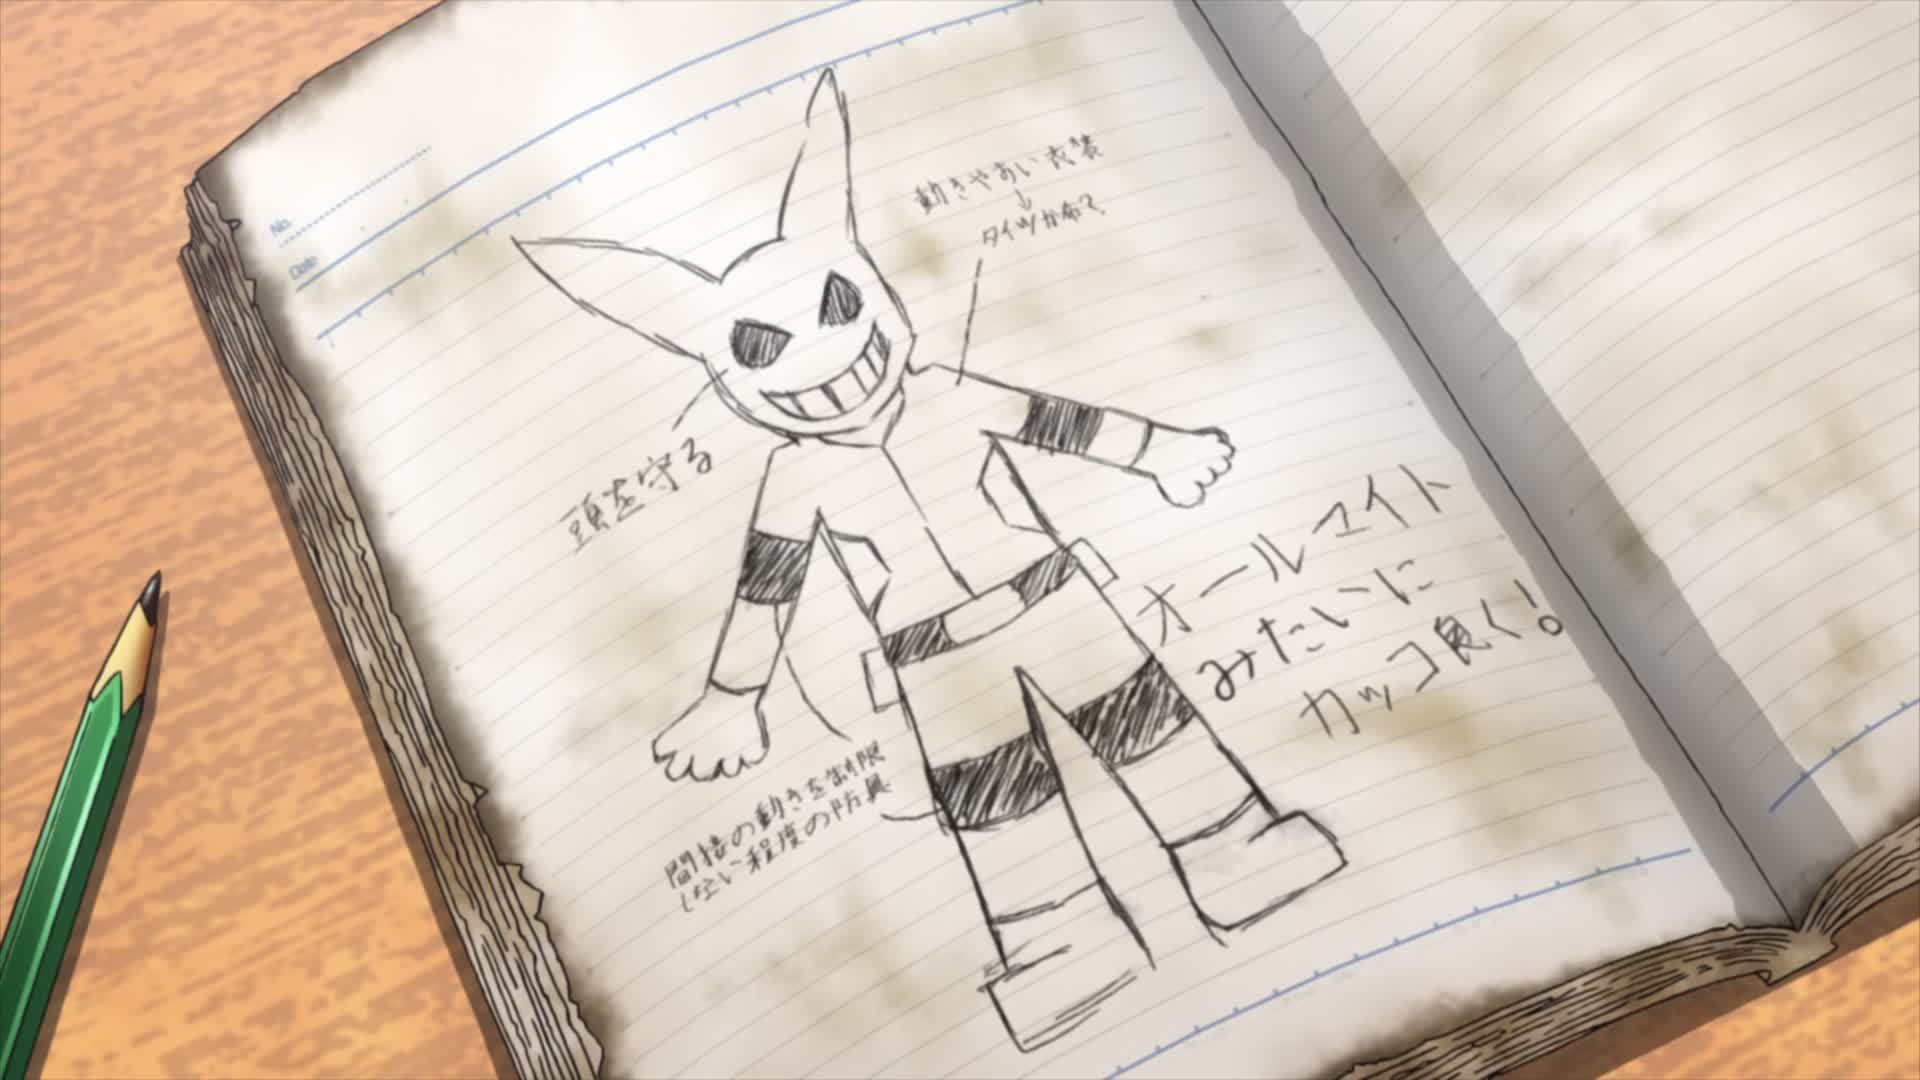 No.
Date
動きやすい衣装
↓
タイツが命で、
頭を守る
オールマイト
みたいに
カッコ良く!
間接の動きを制限
しない程度の防具